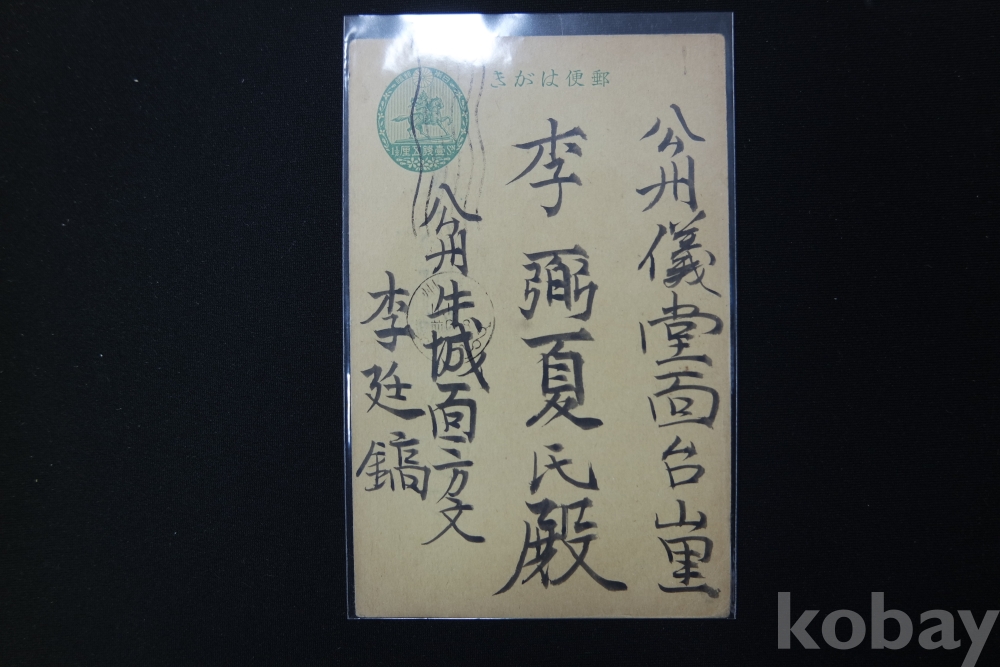 郵便はがき
公州儀堂面台山里
李弼夏氏殿
公州牛城面方文
李廷鎬
kobay